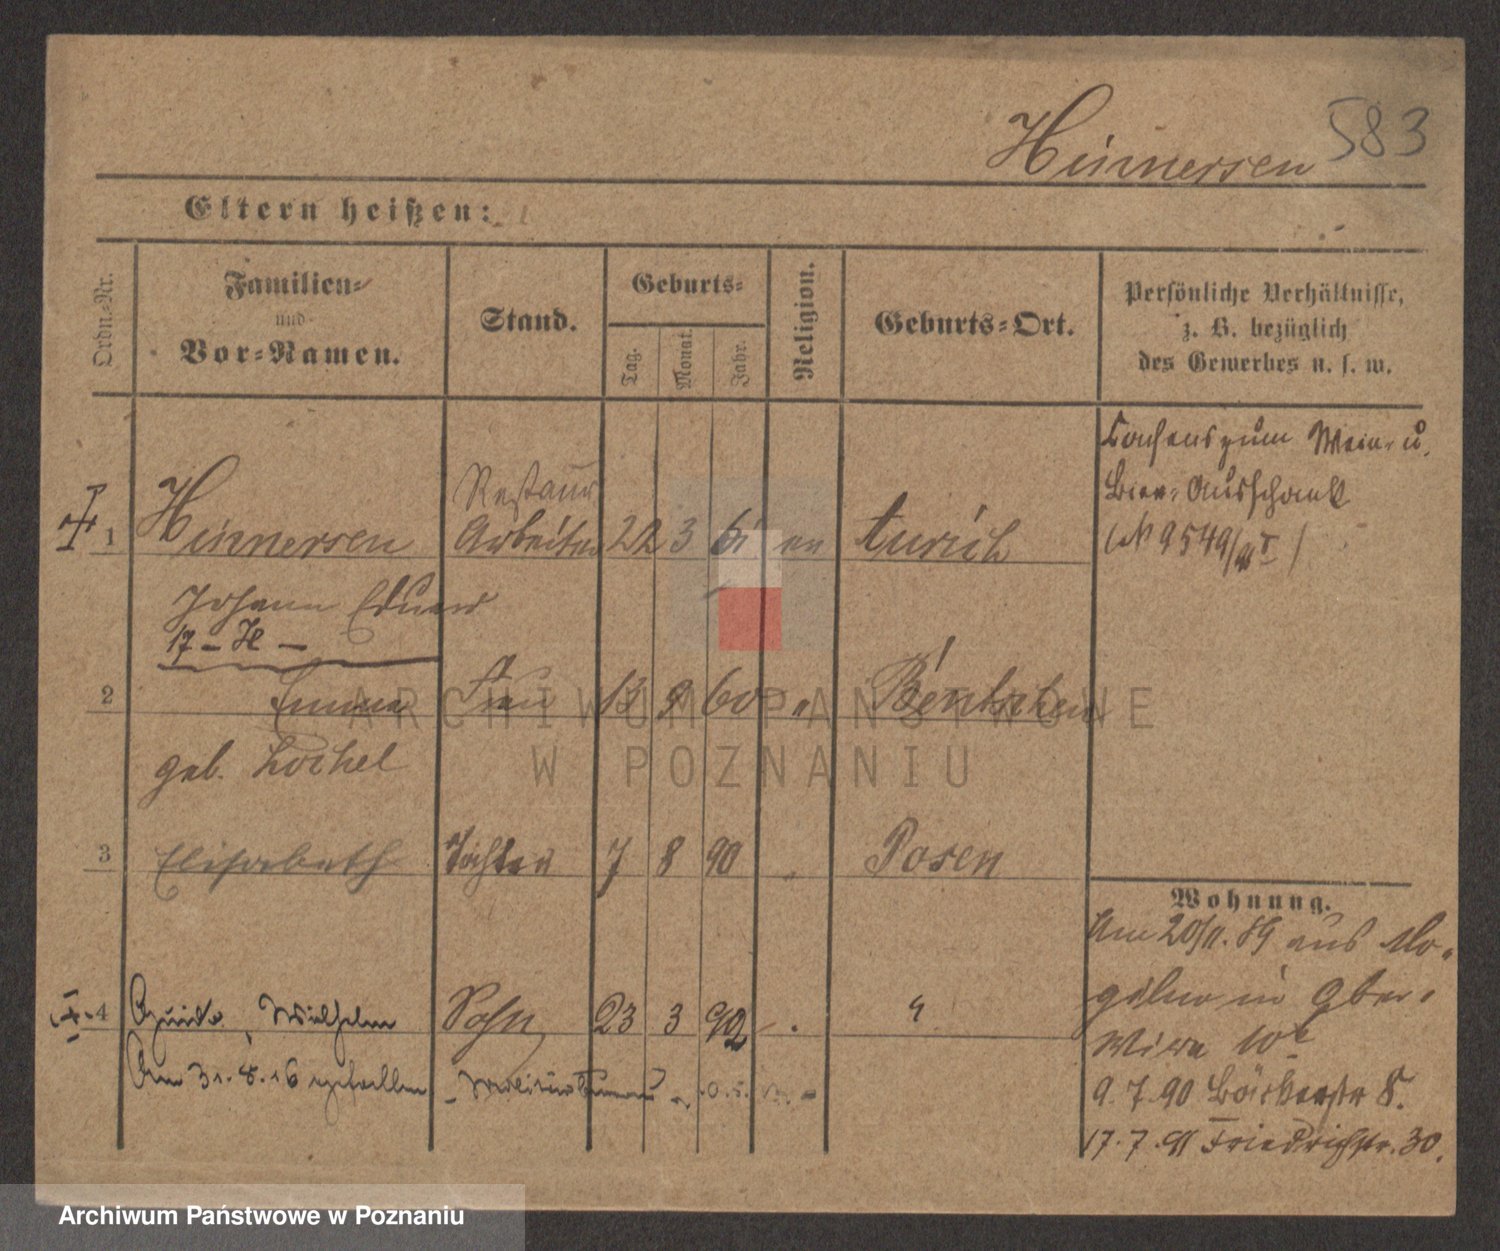 Hinnersen 583
Eltern heißen:
Ordn.-Nr.
Familien-
und
Vor-Namen.
Stand.
Geburts-
Tag.
Monat.
Jahr.
Religion.
Geburts-Ort.
Persönliche Verhältnisse,
z. B. bezüglich
des Gewerbes u. s. w.
Consens zum Wein- u.
Bier-Ausschank
(№ 9549/91 I)
Restaur
1 Hinnersen Arbeiter 22 3 61 ev Aurich
Johann Eduard
17 - H -
2 Emma Frau 13 9 60 " Bentschen
geb. Lochel
3 Elisabeth Tochter 7 8 90 " Posen
Wohnung.
Am 20/11. 89 aus Mo-
gilno in Ober-
Wilda 10
9. 7. 90 Bäckerstr 8.
17. 7. 91 Friedrichstr. 30.
4 Guido, Wilhelm Sohn 23 3 92 "
Am 31. 8. 16 gefallen
ARCHIWUM PAŃSTWOWE
W POZNANIU
Archiwum Państwowe w Poznaniu